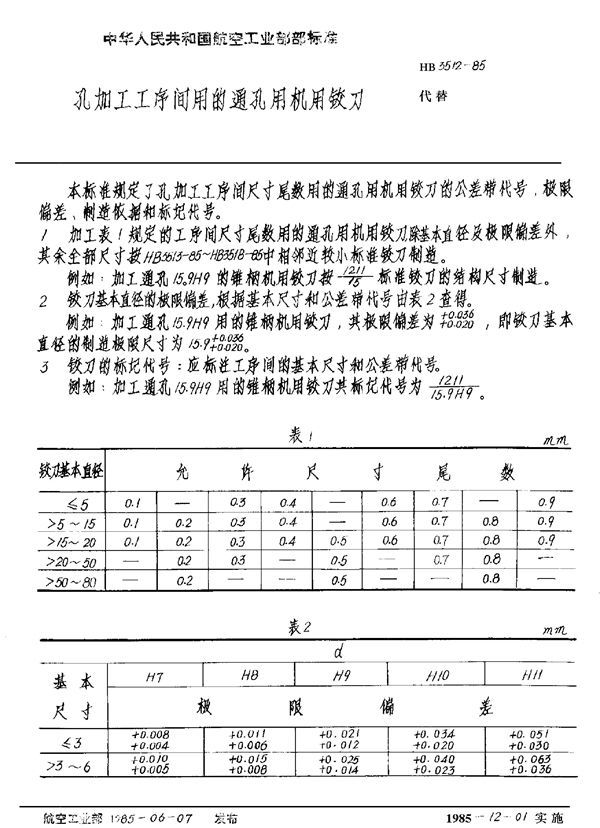 中华人民共和国航空工业部部标准
HB 3512-85
孔加工工序间用的通孔用机用铰刀
代替
本标准规定了孔加工工序间尺寸尾数用的通孔用机用铰刀的公差带代号、极限
偏差、制造依据和标记代号。
1 加工表1规定的工序间尺寸尾数用的通孔用机用铰刀,除基本直径及极限偏差外,
其余全部尺寸按HB3513-85~HB3518-85中相邻近较小标准铰刀制造。
例如:加工通孔15.9H9的锥柄机用铰刀按 1211/15 标准铰刀的结构尺寸制造。
2 铰刀基本直径的极限偏差,根据基本尺寸和公差带代号由表2查得。
例如:加工通孔15.9H9用的锥柄机用铰刀,其极限偏差为 +0.036 +0.020 ,即铰刀基本
直径的制造极限尺寸为 15.9 +0.036 +0.020。
3 铰刀的标记代号:应标注工序间的基本尺寸和公差带代号。
例如:加工通孔15.9H9用的锥柄机用铰刀其标记代号为 1211/15.9H9 。
表1 mm
铰刀基本直径 允许尺寸尾数
≤5 0.1 — 0.3 0.4 — 0.6 0.7 — 0.9
>5~15 0.1 0.2 0.3 0.4 — 0.6 0.7 0.8 0.9
>15~20 0.1 0.2 0.3 0.4 0.5 0.6 0.7 0.8 0.9
>20~50 — 0.2 0.3 — 0.5 — 0.7 0.8 —
>50~80 — 0.2 — — 0.5 — — 0.8 —
表2 mm
d
基本 H7 H8 H9 H10 H11
尺寸 极限偏差
≤3 +0.008 +0.011 +0.021 +0.034 +0.051
+0.004 +0.006 +0.012 +0.020 +0.030
>3~6 +0.010 +0.015 +0.025 +0.040 +0.063
+0.005 +0.008 +0.014 +0.023 +0.036
航空工业部 1985-06-07 发布 1985-12-01 实施